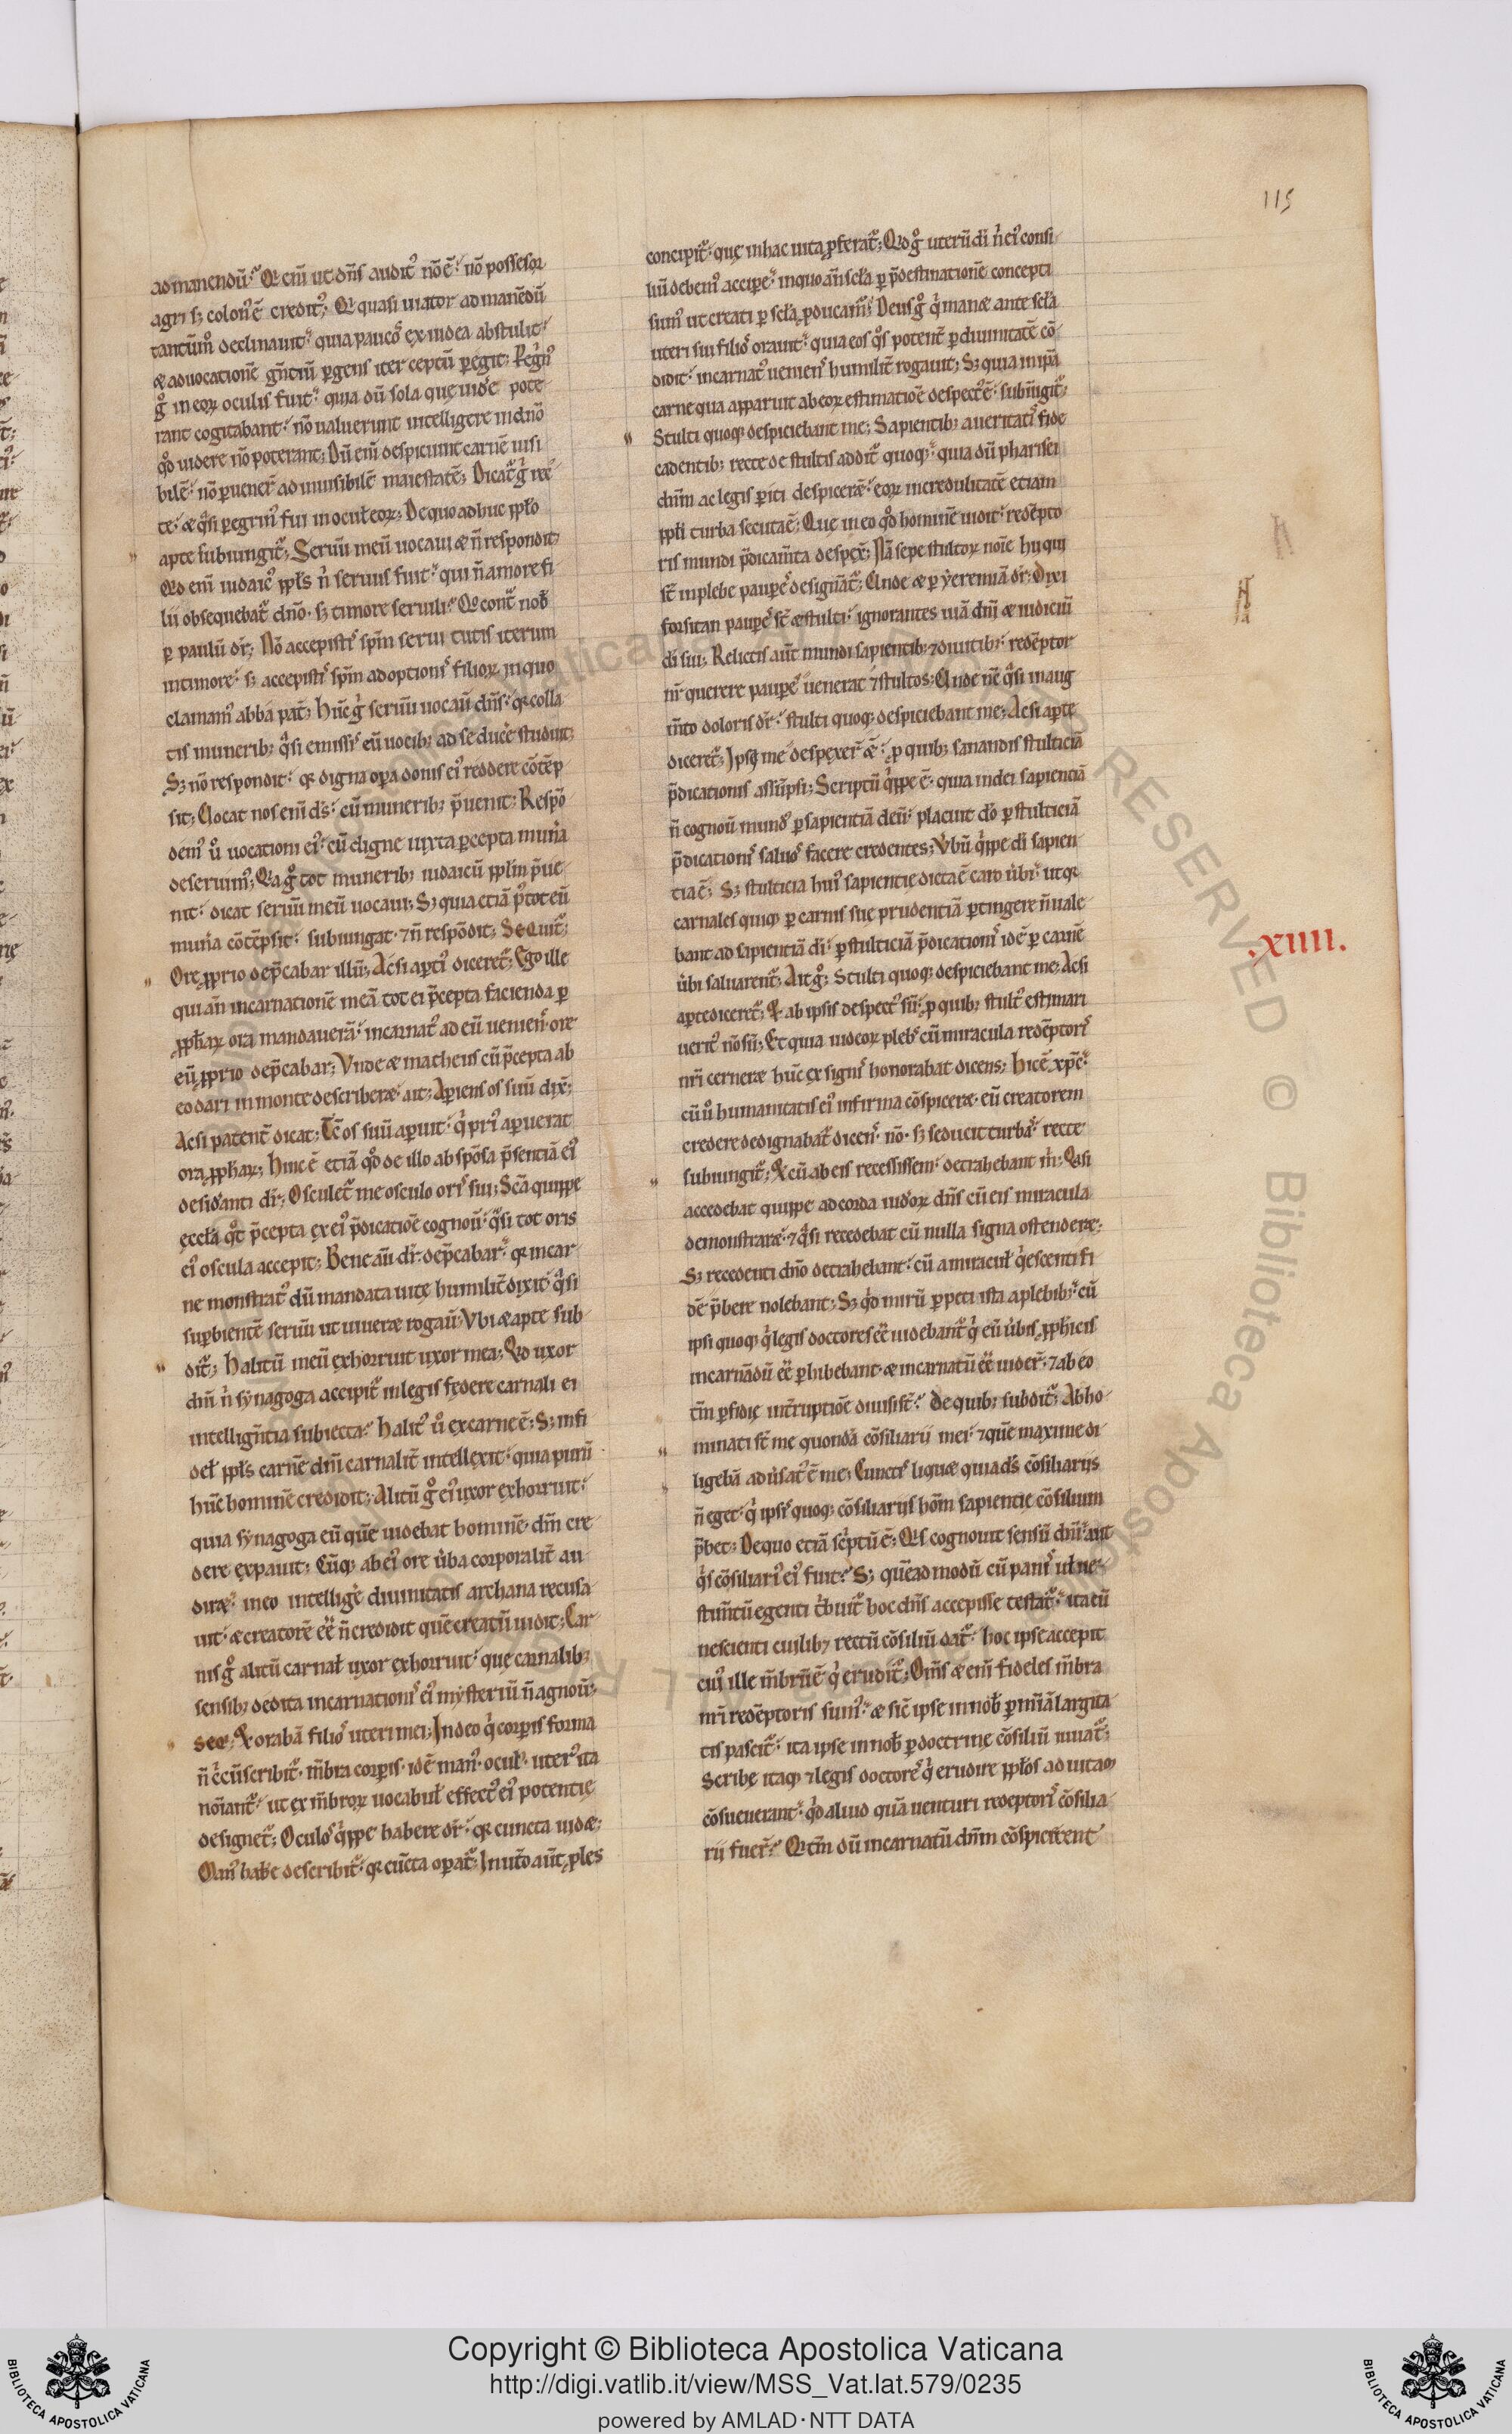 115
ad manendũ? Qr eni ut dns audit nõ ẽ. nõ possesor
agri sꝫ colon ẽ credit; Qr quasi uiator ad manẽdũ
tantũm declinauit. quia paucos ex iudea abstulit.
& ad uocationẽ gñtiũ ꝑgens iter ceptũ ꝑegit; Peg̃n
g̊ in eoꝝ oculis fuit. quia dũ sola quę uidẽ pote
rant cogitabant. nõ ualuerunt intelligere in dño
qđ uidere nõ poterant; Dũ eni despiciunt carnẽ uisi
bilẽ. nõ ꝑuener̃ ad inuisibilẽ maiestatẽ; Dicat g̊ rec
te. & qͣsi ꝑegrin fui in ocul eoꝝ; De quo adhuc ppło
apte subiungit; Seruũ meũ uocaui & ñ respondit;
Qd eni iudaic ppłs ñ seruus fuit. qui ñ amore fi
lii obsequebat dño. sꝫ timore seruili? Qr cont nob
ꝑ paulũ dr̃; Nõ accepistis spm seruitutis iterum
in timore. sꝫ accepistis spm adoptionis filioꝝ in quo
clamam abba pat̃; Hũc g̊ seruũ uocaũ dñs. qr colla
tis munerib; qͣsi emissis eũ uocib; ad se ducẽ studuit;
Sꝫ nõ respondit. qr digna oꝑa donis ei reddere cõtẽp
sit; Uocat nos eni ds. cũ munerib; p̃uenit; Respõ
dem ů uocationi ei. cũ digne iuxta ꝑcepta munꝰa
deseruim; Qa g̊ tot munerib; iudaicũ pplm p̃ue
nit. dicat seruũ meũ uocaui; Sꝫ quia etiã p̃ tot eũ
munꝰa cõtẽpsit. subiungat. ⁊ ñ respõdit; Sequit;
Ore ꝓprio dep̃cabar illũ; Ac si aꝑti diceret; Ego ille
qui añ incarnationẽ meã tot ei p̃cepta facienda ꝑ
ꝓphaꝝ ora mandauerã. incarnat ad eũ ueniens. ore
eũ ꝓprio dep̃cabar; Vnde & matheus cũ p̃cepta ab
eo dari in monte describer&. ait; Aꝑiens os suũ dix̃;
Ac si patent dicat; Tc̃ os suũ aꝑuit. q pri aꝑuerat
ora ꝓphaꝝ; Hinc ẽ etiã qđ de illo ab spõsa p̃sentiã ei
desidanti dr̃; Osculet me osculo oris sui; Sc̃a quippe
ęccła qt p̃cepta ex ei p̃dicatiõe cognoũ. qͣsi tot oris
ei oscula accepit; Bene aũ dr̃. dep̃cabar. qr in car
ne monstrat dũ mandata uitę humilit dixit. qͣsi
suꝑbientẽ seruũ ut uiuer& rogaũ; Vbi & apte sub
dit; Halitũ meũ exhorruit uxor mea; Qd uxor
dñi ñ synagoga accipit in legis fędere carnali ei
intelligñtia subiecta? Halit ů ex carne ẽ; Sꝫ infi
del ppłs carnẽ dñi carnalit intellexit. quia purũ
hũc hominẽ credidit; Alitũ g̊ ei uxor exhorruit.
quia synagoga eũ quẽ uidebat hominẽ. dñm cre
dere expauit; Cũq; ab ei ore uba corporalit au
dir&. in eo intelligẽ diuinitatis archana recusa
uit. & creatorẽ eẽ ñ credidit quẽ creatũ uidit; Car
nis g̊ alitũ carnal uxor exhorruit. que carnalib;
sensib; dedita incarnationis ei mysteriũ ñ agnoũ;
Seq̃; Et orabã filios uteri mei; In deo q corꝑis forma
ñ c̃cũscribit. mbra corꝑis. id ẽ man. ocul. uter ita
noiant. ut ex mbroꝝ uocabul effect ei potentię
designet; Oculos qppe habere dr̃. qr cuncta uid&;
Man habẽ describit. qr cũcta oꝑat; In utõ aũt ples
concipit. quę in hac uita ꝓferat; Qd g̊ uterũ di ñ ei consi
liũ debem acciꝑe. in quo añ scła ꝑ p̃destinationẽ concepti
sum ut creati ꝑ scła ꝓducam; Deus g̊ q man& ante scła
uteri sui filios orauit. quia eos qs potent ꝑ diuinitatẽ cõ
didit. incarnat ueniens humilit rogauit; Sꝫ quia in ipa
carne qua apparuit ab eoꝝ estimatiõe despect ẽ. subiungit;
Stulti quoq; despiciebant me; Sapientib; a ueritatis fide
cadentib; recte de stultis addit quoq;. quia dũ pharisei
dñm ac legis ꝑiti despicer&. eoꝝ incredulitatẽ etiam
ppłi turba secuta ẽ; Quę in eo qđ hominẽ uidit. redẽpto
ris mundi p̃dicamta despex̃; Nã sepe stultoꝝ noie hi qui
st in plebe pauꝑes designãt; Unde & ꝑ yeremiã dr̃; Dixi
forsitan pauꝑes st & stulti. ignorantes uiã dñi & iudiciũ
di sui; Relictis aũt mundi sapientib; ⁊ diuitib;. redẽptor
nr̃ querere pauꝑes uenerat ⁊ stultos; Unde nc̃ qͣsi in aug
mto doloris dr̃. stulti quoq; despiciebant me; Ac si aꝑte
diceret; Ipsi me despexer̃ &. ꝓ quib; sanandis stulticiã
p̃dicationis assũpsi; Scriptũ qppe ẽ. quia in dei sapienciã
ñ cognoũ mund ꝑ sapientiã deũ. placuit dõ ꝑ stulticiã
p̃dicationis saluos facere credentes; Vbũ qppe di sapien
tia ẽ; Sꝫ stulticia hui sapientię dicta ẽ caro ubi. ut qr
carnales quiq; ꝑ carnis suę prudentiã ꝑtingere ñ uale
bant ad sapientiã di. ꝑ stulticiã p̃dicationis id ẽ ꝑ carnẽ
ubi saluarent; Ait g̊; Stulti quoq; despiciebant me; Ac si
aꝑte diceret; Et ab ipsis despect sũ. ꝓ quib; stult estimari
uerit nõ sũ; Et quia iudeoꝝ plebs cũ miracula redẽptoris
nri cerner& hũc ex signis honorabat dicens; Hic ẽ xp̃c.
cũ ů humanitatis ei infirma cõspicer&. eũ creatorem
credere dedignabat dicens. nõ. sꝫ seducit turbas. recte
subiungit; Et cũ ab eis recessissem. detrahebant m̃; Qͣsi
accedebat quippe ad corda iudoꝝ dñs cũ eis miracula
demonstrar&. ⁊ qͣsi recedebat cũ nulla signa ostender&;
Sꝫ recedenti dño detrahebant. cũ a miracul qescenti fi
dẽ p̃bere nolebant; Sꝫ qd mirũ ꝑpeti ista a plebib;. cũ
ipsi quoq; q legis doctores eẽ uidebant q eũ ubis ꝓphicis
incarnãdũ eẽ ꝑhibebant. & incarnatũ eẽ uider̃. ⁊ ab eo
tm ꝑfidię int̃ruptiõe diuisi st? de quib; subdit; Abho
minati st me quondã cõsiliarii mei. ⁊ quẽ maxime di
ligebã adusat ẽ me; Cunctis liqu& quia ds cõsiliariis
ñ eget. q ipsis quoq; cõsiliariis hom sapientię cõsilium
p̃bet; De quo etiã scptũ ẽ; Qs cognouit sensũ dñi. aut
qs cõsiliari ei fuit? Sꝫ quẽadmodũ cũ panis ul ue
stimtũ egenti tbuit hoc dñs accepisse testat. ita cũ
nescienti cuilib; rectũ cõsiliũ dat. hoc ipse accepit
cui ille mbrũ ẽ q erudit; Oms & eni fideles mbra
nri redẽptoris sum. & sic ipse in nob ꝑ miã largita
tis pascit. ita ipse in nob ꝑ doctrinę cõsiliũ iuuat;
Scribę itaq; ⁊ legis doctores q erudire ppłos ad uitam
cõsueuerant. qd aliud quã uenturi redeptoris cõsilia
rii fuer̃? Qr tm dũ incarnatũ dñm cõspicerent
.XIIII.
Copyright © Biblioteca Apostolica Vaticana
http://digi.vatlib.it/view/MSS_Vat.lat.579/0235
powered by AMLAD·NTT DATA
BIBLIOTECA APOSTOLICA VATICANA
BIBLIOTECA APOSTOLICA VATICANA